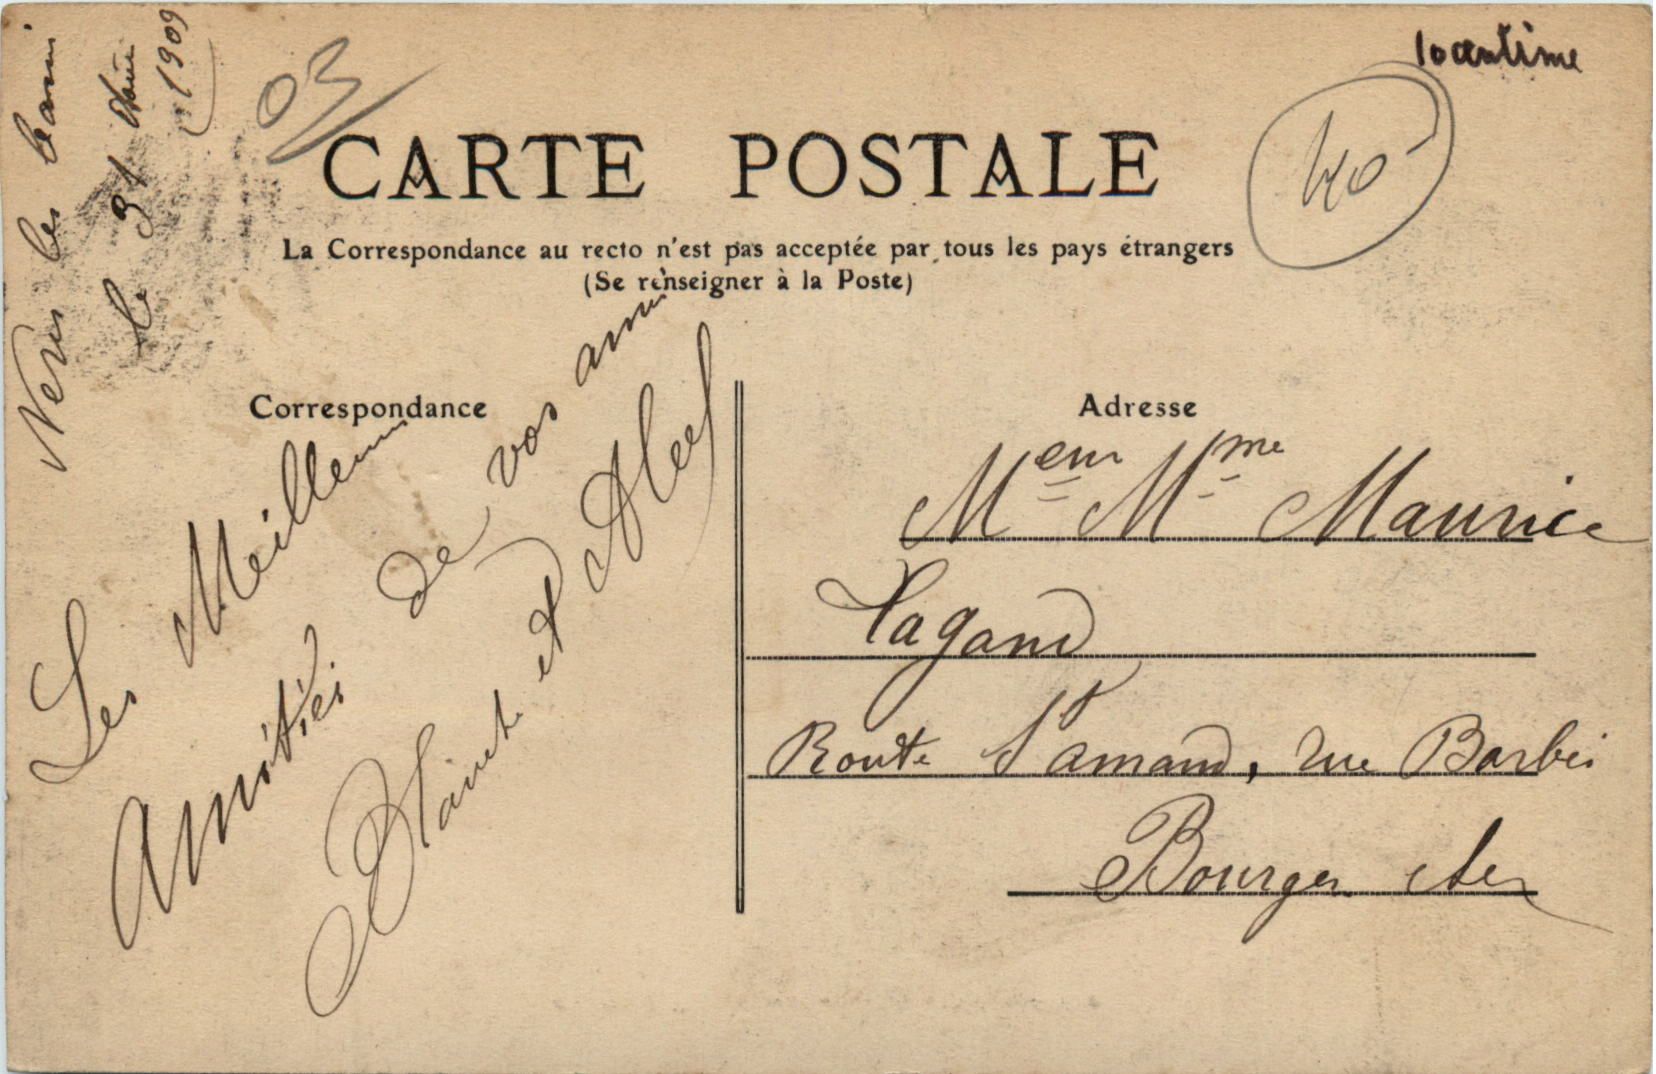 10 centime
03
40
CARTE POSTALE
La Correspondance au recto n'est pas acceptée par tous les pays étrangers
(Se renseigner à la Poste)
Neris les bains
le 31
1909
Correspondance
Les Meilleurs
Amitiés de vos amis
Blanche et
Adresse
Meur Mme Maurice
Lagand
Route St amand, rue Barbès
Bourges Cher